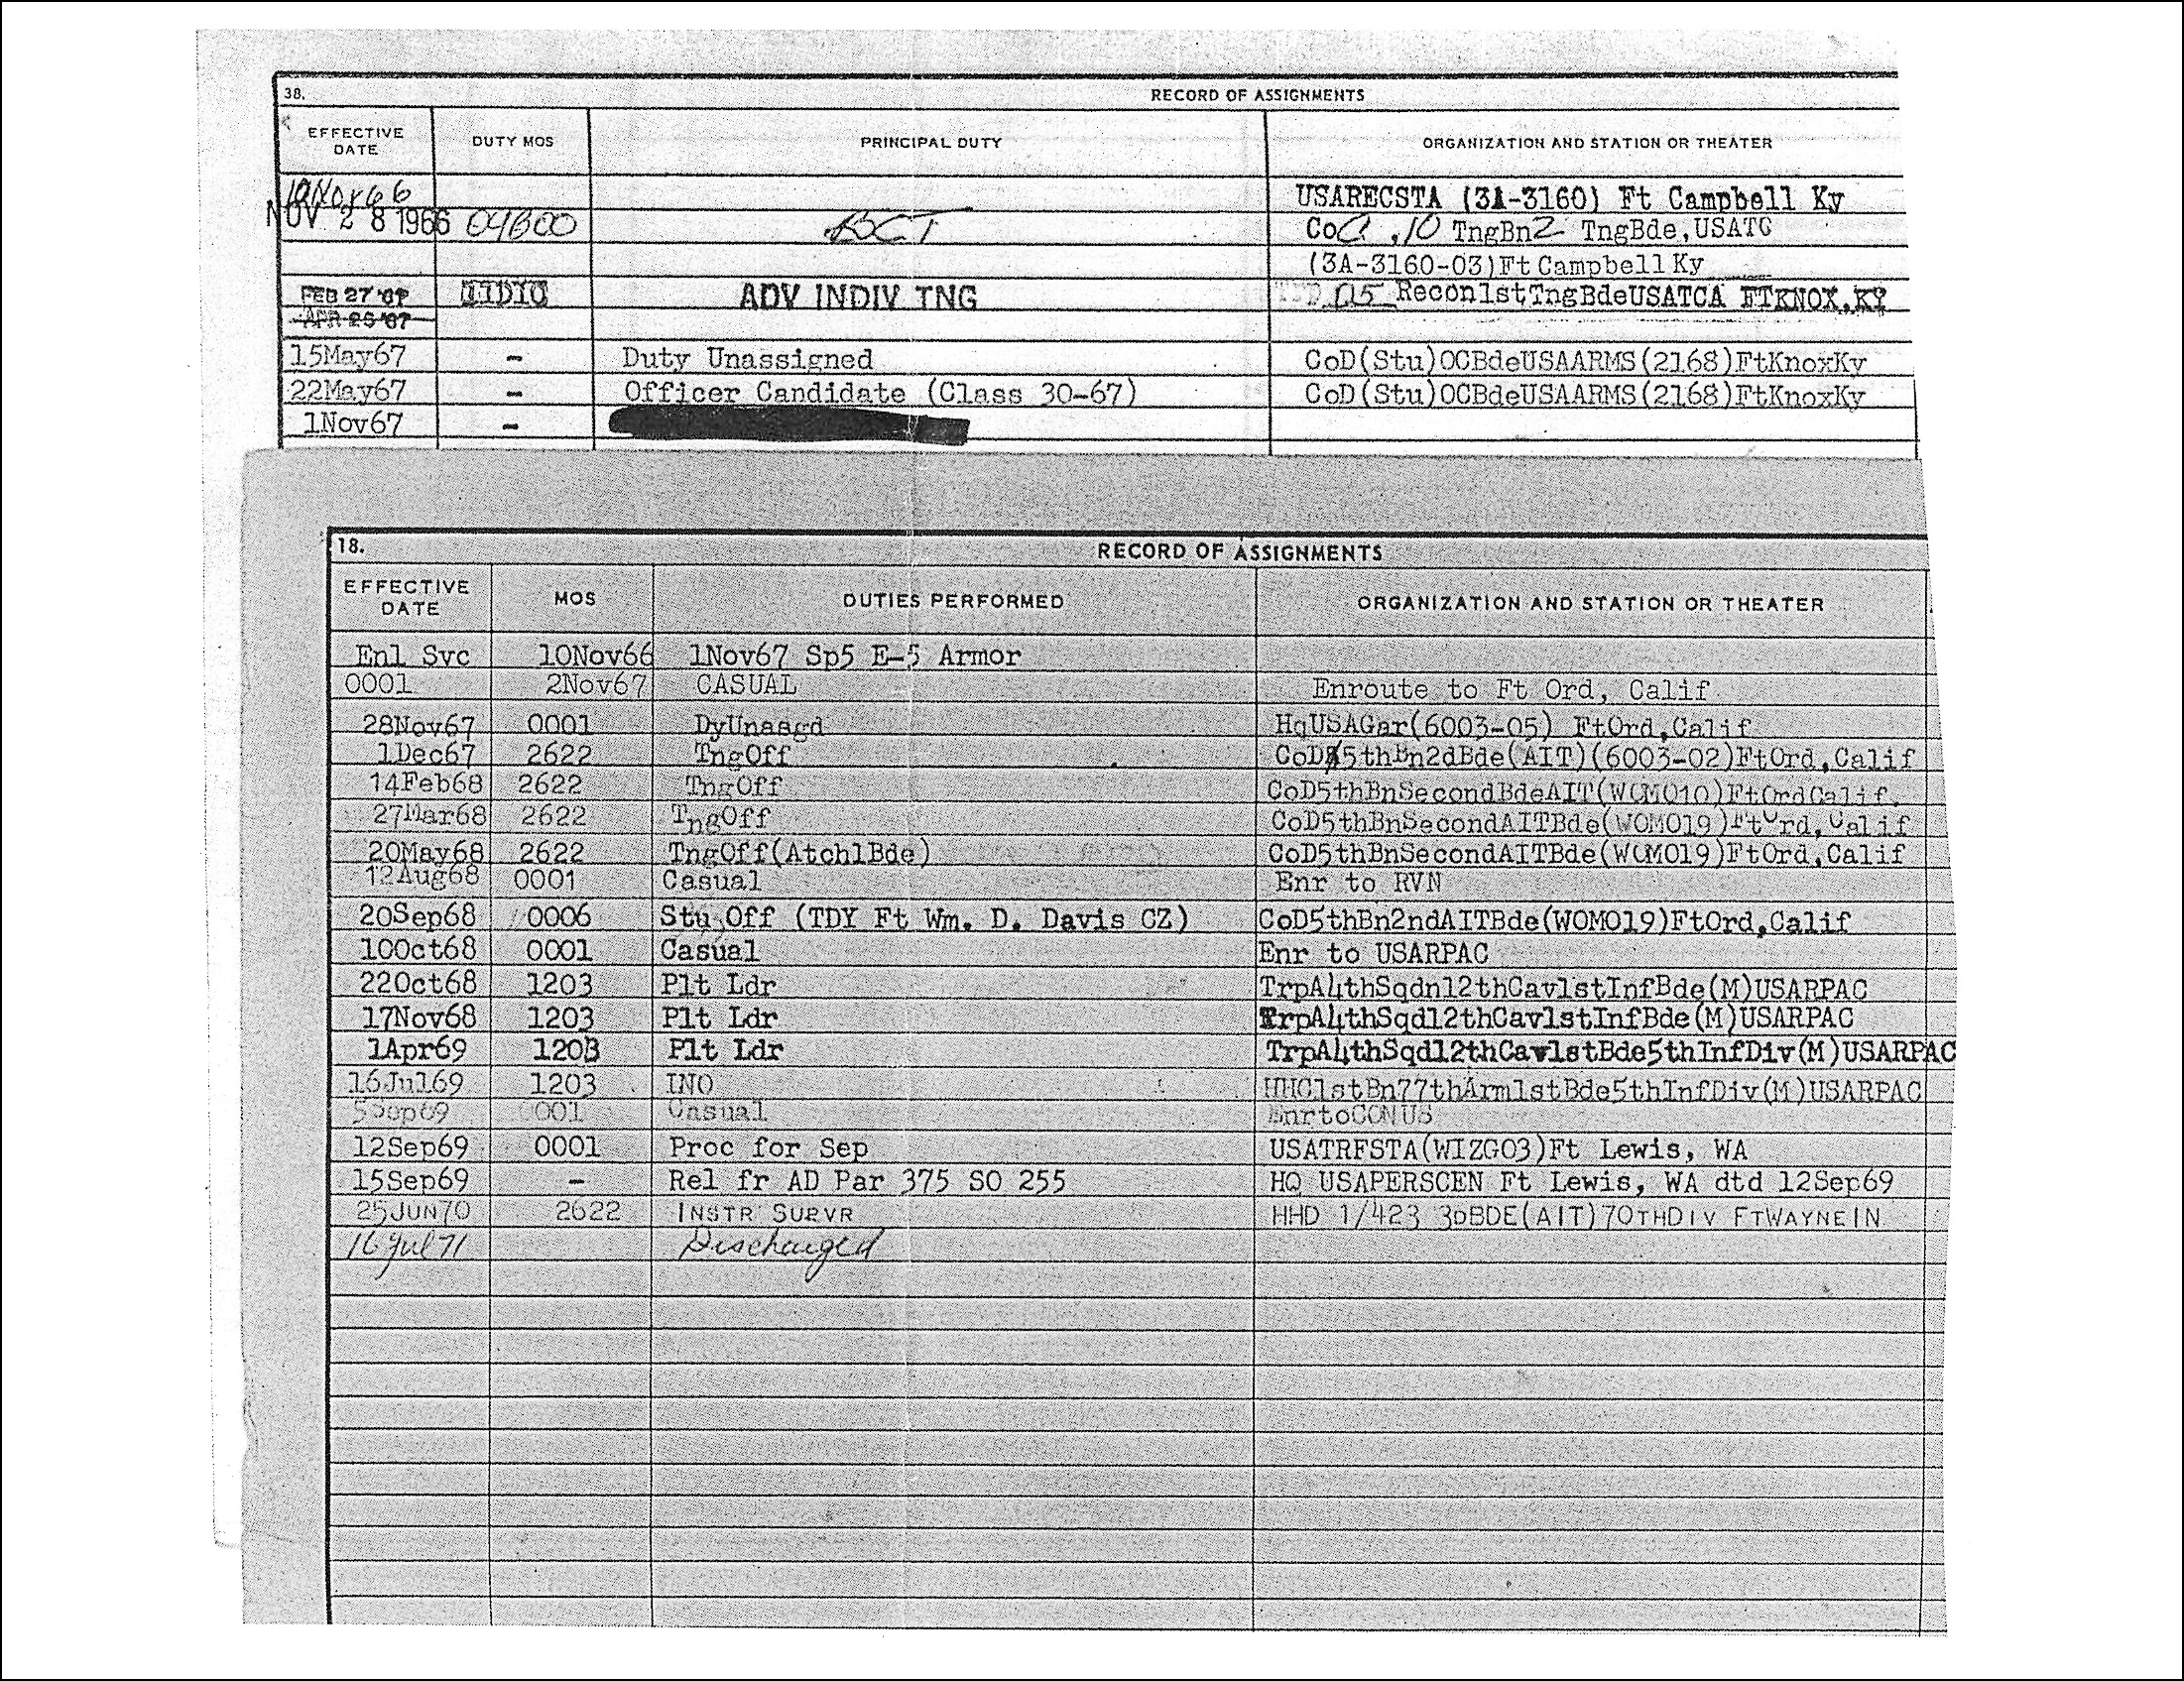 38. RECORD OF ASSIGNMENTS
EFFECTIVE DATE DUTY MOS PRINCIPAL DUTY ORGANIZATION AND STATION OR THEATER
10Nov66 USARECSTA (3A-3160) Ft Campbell Ky
NOV 28 1966 04B00 BCT Co , 10 TngBn 2 TngBde, USATC
(3A-3160-03) Ft Campbell Ky
FEB 27 '67 11D10 ADV INDIV TNG Recon1stTngBdeUSATCA FTKNOX, KY
APR 26 '67
15May67 - Duty Unassigned CoD(Stu)OCBdeUSAARMS(2168)FtKnoxKy
22May67 - Officer Candidate (Class 30-67) CoD(Stu)OCBdeUSAARMS(2168)FtKnoxKy
1Nov67 -
18. RECORD OF ASSIGNMENTS
EFFECTIVE DATE MOS DUTIES PERFORMED ORGANIZATION AND STATION OR THEATER
Enl Svc 10Nov66 1Nov67 Sp5 E-5 Armor
0001 2Nov67 CASUAL Enroute to Ft Ord, Calif
28Nov67 0001 DyUnasgd HqUSAGar(6003-05) FtOrd,Calif
1Dec67 2622 TngOff CoD5thBn2dBde(AIT)(6003-02)FtOrd,Calif
14Feb68 2622 TngOff CoD5thBnSecondBdeAIT(WOMO10)FtOrdCalif.
27Mar68 2622 TngOff CoD5thBnSecondAITBde(WOMO19)FtOrd,Calif
20May68 2622 TngOff(Atch1Bde) CoD5thBnSecondAITBde(WOMO19)FtOrd,Calif
12Aug68 0001 Casual Enr to RVN
20Sep68 0006 Stu Off (TDY Ft Wm. D. Davis CZ) CoD5thBn2ndAITBde(WOMO19)FtOrd,Calif
10Oct68 0001 Casual Enr to USARPAC
22Oct68 1203 Plt Ldr TrpA4thSqdn12thCav1stInfBde(M)USARPAC
17Nov68 1203 Plt Ldr TrpA4thSqd12thCav1stInfBde(M)USARPAC
1Apr69 1203 Plt Ldr TrpA4thSqd12thCav1stBde5thInfDiv(M)USARPAC
16Jul69 1203 INO HHC1stBn77thArm1stBde5thInfDiv(M)USARPAC
5Sep69 0001 Casual EnrtoCONUS
12Sep69 0001 Proc for Sep USATRFSTA(WIZGO3)Ft Lewis, WA
15Sep69 - Rel fr AD Par 375 SO 255 HQ USAPERSCEN Ft Lewis, WA dtd 12Sep69
25JUN70 2622 INSTR SUPVR HHD 1/423 3DBDE(AIT)70THDIV FTWAYNEIN
16 Jul 71 Discharged